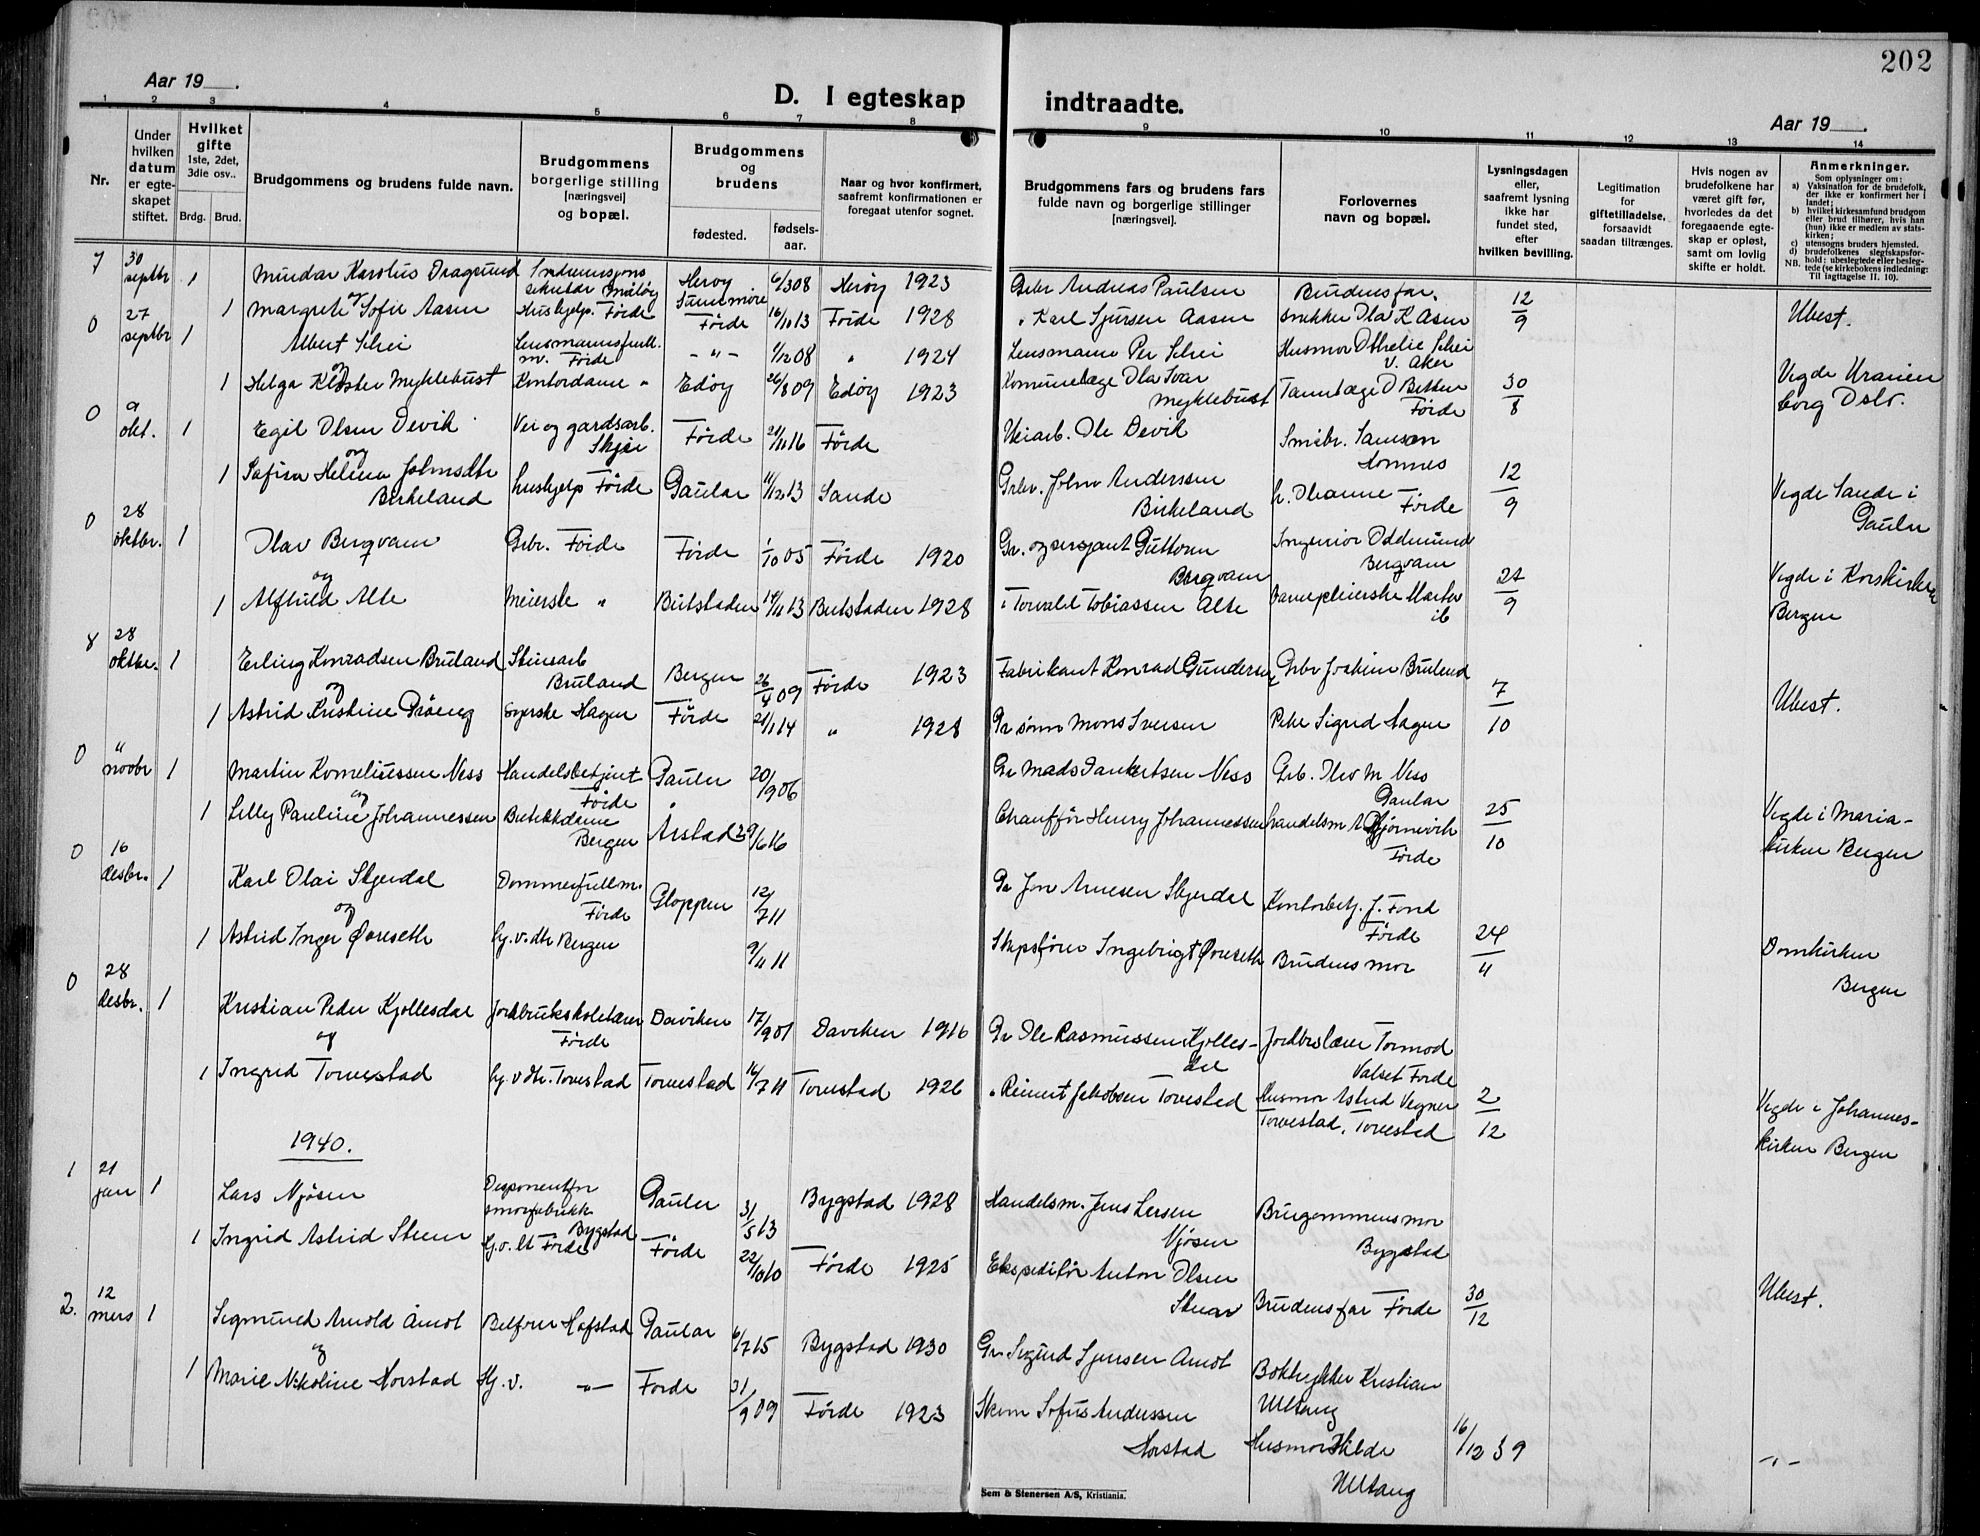 202
Aar 19 .
D. I egteskap indtraadte.
Aar 19 .
1 2 3 4 5 6 7 8 9 10 11 12 13 14
Nr.
Under hvilken datum er egte-skapet stiftet.
Hvilket gifte 1ste, 2det, 3die osv..
Brdg. Brud.
Brudgommens og brudens fulde navn.
Brudgommens borgerlige stilling [næringsvei] og bopæl.
Brudgommens og brudens
fødested. fødsels-aar.
Naar og hvor konfirmert, saafremt konfirmationen er foregaat utenfor sognet.
Brudgommens fars og brudens fars fulde navn og borgerlige stillinger [næringsvei].
Forlovernes navn og bopæl.
Lysningsdagen eller, saafremt lysning ikke har fundet sted, efter hvilken bevilling.
Legitimation for giftetilladelse, forsaavidt saadan tiltrænges.
Hvis nogen av brudefolkene har været gift før, hvorledes da det foregaaende egte-skap er opløst, samt om lovlig skifte er holdt.
Anmerkninger.
Som oplysninger om:
a) Vaksination for de brudefolk, der ikke er konfirmert her i landet;
b) hvilket kirkesamfund brudgom eller brud tilhører, hvis han (hun) ikke er medlem av stats-kirken;
c) utensogns bruders hjemsted.
d) brudefolkenes slegtskapsfor-hold: ubeslegtede eller besleg-tede (se kirkebokens indledning:
NB. Til iagttagelse II. 10).
7 30 septbr 1 Karolus Dragsund Herøy 6/3 08 Herøy 1923 Gbr Andreas Paulsen Brudens far.
og Sunnmøre
1 Margrete Sofie Aasen Hushjelp. Førde Førde 16/10 13 Førde 1928 " Karl Sjursen Aasen snekker Ola K Asen 12/9 Ubest.
0 27 septbr 1 Albert Schei Lensmannsfullm. Førde -"- 1/12 08 " 1924 Lensmann Per Schei Husmor Othelie Schei V. Aker
og
1 Helga Kloster Myklebust Kontordame " Edøy 26/8 09 Edøy 1923 Komunelæge Ola Ivar Myklebust Tannlæge O Førde 30/8 Vegde Uranien borg Oslo.
0 9 okt. 1 Egil Olsen Devik Vei og gardsarb. Skjei Førde 21/11 16 Førde Veiarb. Ole Devik Smibr. Samson Hornnes
og
1 Helena Johnsdtr Birkeland hushjelp Førde Gaular 11/12 13 Sande Grbr. John Anderssen Birkeland Førde 12/9 Vegde Sande i Gauler
0 28 oktbr. 1 Olav Bergvam Grbr. Førde Førde 1/10 05 Førde 1920 Gr. og sersjant Guttorm Bergvam Ingeniør Oddmund Bergvam
og
1 Alfhild Alte Meierske " Buksnes 14/11 13 1928 " Torvald Tobiassen Alte ib 27/9 Vegde i Korskirken Bergen
8 28 oktbr. 1 Erling Konradsen Bruland Stensarb Bruland Bergen 26/4 09 Førde 1923 Fabrikant Konrad Gundersen Grbr Joakim Bruland
og
1 Astrid Kristine syerske Hagen Førde 21/1 14 " 1928 Gr sønn Mons Iversen Sigrid Hagen 7/10 Ubest.
0 " novbr 1 Martin Korneliussen Ness Handelsbetjent Førde Gauler 20/9 06 Gr Mads Ness Grb. M Ness Gaular
og
1 Lilly Pauline Johannessen Butikkdame Bergen Årstad 29/6 16 Chauffør Henry Johannessen handelsm Førde 25/10 Vegde i Maria-kirken Bergen
0 16 desbr. 1 Karl Olai Skjerdal Dommerfullm. Førde Gloppen 12/7 11 Gr Jon Arnesen Skjerdal Kontorbetj. J. Ford Førde
og
1 Astrid Inger Øvreseth hj.v.dtr Bergen 9/4 11 Skipsfører Ingebrigt Øvreseth Brudens mor 24/4 Domkirken Bergen
0 28 desbr. 1 Kristian Peder Kjøllesdal Jordbrukskolelærer Førde Daviken 17/9 01 Daviken 1916 Gr Ole Rasmussen Kjølles-dal Jordbrslærer Tormod Valset Førde
og
1 Ingrid Torvestad hj.v dtr. Torvestad Torvestad 14/7 11 Torvestad 1926 " Reinert Jakobsen Torvestad Husmor Astrid Vegner Torvestad, Torvestad 2/12 Vegde i Johannes-kirken Bergen
1940.
1 21 jan 1 Lars Njøsen Disponent for smørfabrikk Bygstad Gauler 31/5 13 Bygstad 1928 Handelsm. Jens Larsen Njøsen Brurgommens mor Bygstad
1 Ingrid Astrid Steen hj.v. dt Førde Førde 22/10 10 Førde 1925 Ekspeditør Anton Olsen Steen Brudens far Førde 30/12 Ubest.
2. 12 mars 1 Sigmund Arnold Åmot Hafstad Gaular 6/7 15 Bygstad 1930 Gr Sigurd Sjursen Åmot Boktrykker Kristian Ultang
og
1 Marie Nikoline Horstad Hj.v. -"- Førde 31/9 09 Førde 1923 Skom Sofus Anderssen Horstad Husmor Hilde Ultang 16/12 39 -"-
Sem & Stenersen A/S, Kristiania.